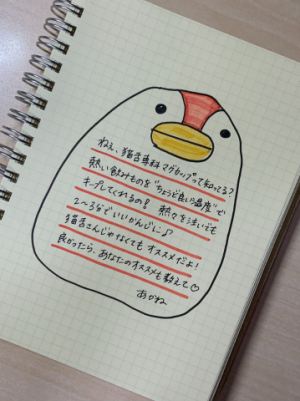 ねぇ、猫舌専科マグカップって知ってる?
熱い飲みものを"ちょうど良い温度"で
キープしてくれるの! 熱々を注いでも
2〜3分でいいかんじに♪
猫舌さんじゃなくてもオススメだよ!
良かったら、あなたのオススメも教えて♡
あかね